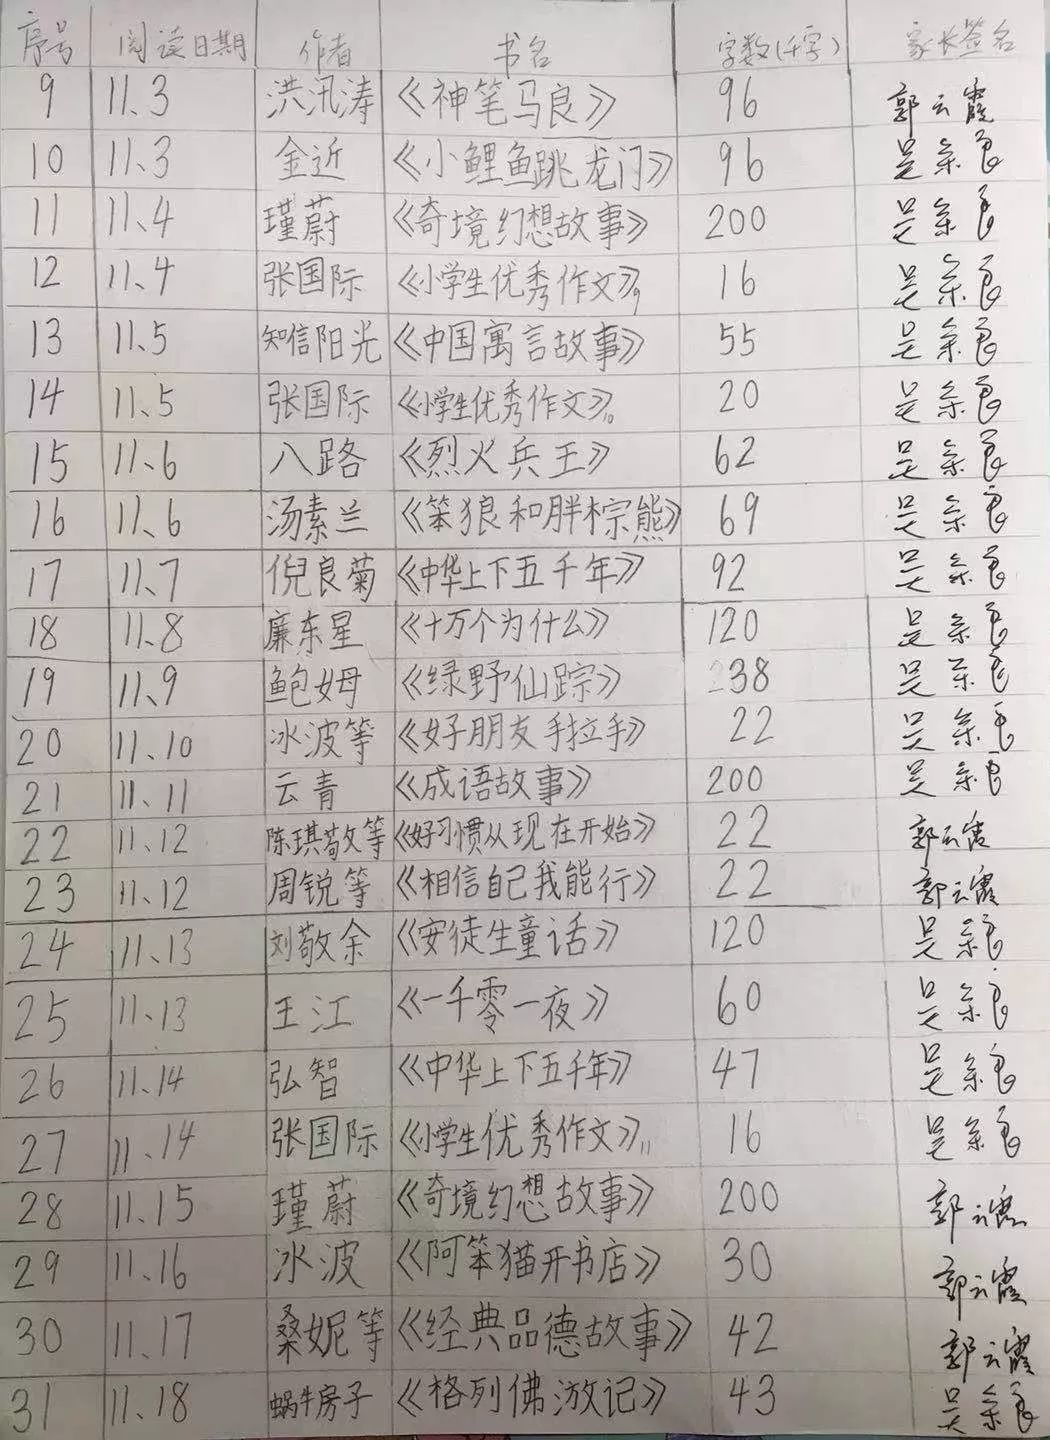 序号 阅读日期 作者 书名 字数(千字) 家长签名
9 11.3 洪汛涛 《神笔马良》 96 郭云霞
10 11、3 金近 《小鲤鱼跳龙门》 96
11 11、4 瑾蔚 《奇境幻想故事》 200
12 11、4 张国际 《小学生优秀作文》9 16
13 11、5 知信阳光 《中国寓言故事》 55
14 11、5 张国际 《小学生优秀作文》10 20
15 11、6 八路 《烈火兵王》 62
16 11、6 汤素兰 《笨狼和胖棕熊》 69
17 11、7 倪良菊 《中华上下五千年》 92
18 11、8 廉东星 《十万个为什么》 120
19 11、9 鲍姆 《绿野仙踪》 238
20 11、10 冰波等 《好朋友手拉手》 22
21 11、11 云青 《成语故事》 200
22 11、12 陈琪敬等 《好习惯从现在开始》 22 郭云霞
23 11、12 周锐等 《相信自己我能行》 22 郭云霞
24 11、13 刘敬余 《安徒生童话》 120
25 11、13 王江 《一千零一夜》 60
26 11、14 弘智 《中华上下五千年》 47
27 11、14 张国际 《小学生优秀作文》11 16
28 11、15 瑾蔚 《奇境幻想故事》 200 郭云霞
29 11、16 冰波 《阿笨猫开书店》 30 郭云霞
30 11、17 桑妮等 《经典品德故事》 42 郭云霞
31 11、18 蜗牛房子 《格列佛游记》 43